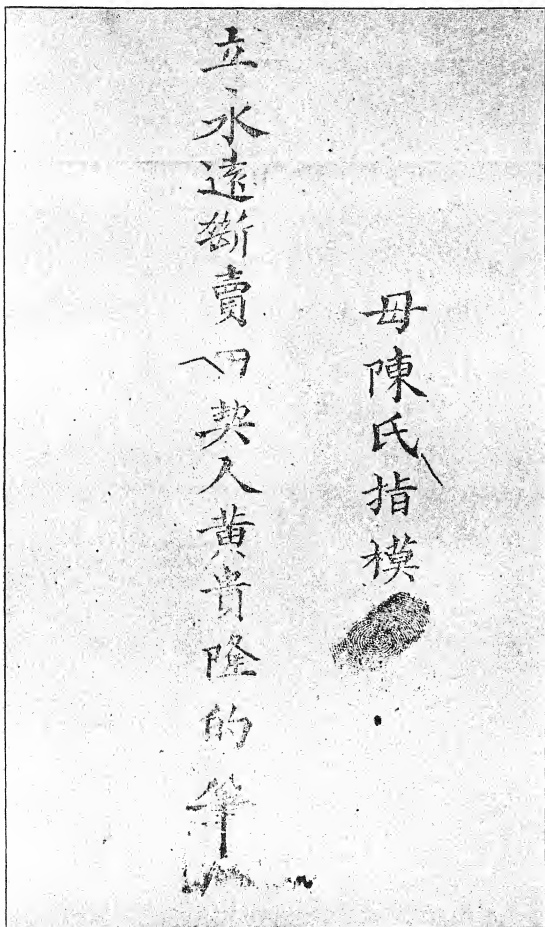 毋陳氏指模
立永遠斷賣田契人黄貴隆的筆